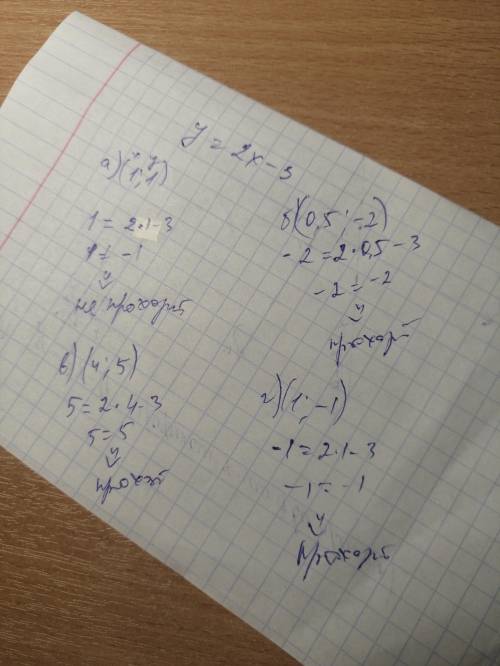 y = 2x - 3
а) (1; 1)
x y
1 = 2·1-3
1 ≠ -1
не проходит
б) (0,5; -2)
-2 = 2·0,5 - 3
-2 = -2
проходит
в) (4; 5)
5 = 2·4-3
5 = 5
проход
г) (1; -1)
-1 = 2·1-3
-1 = -1
проходит